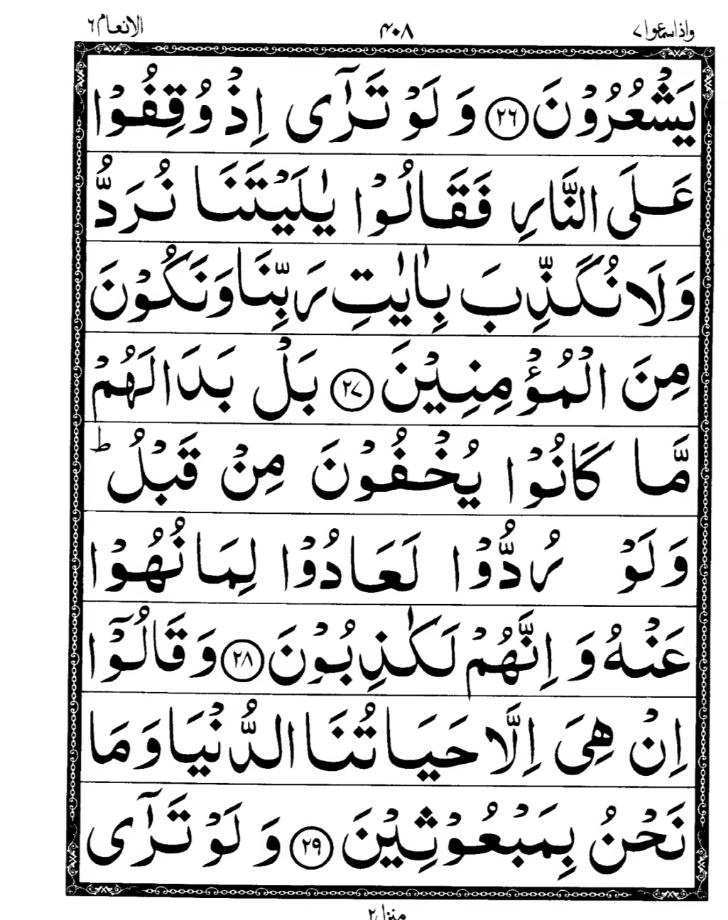 واذاسمعوا ٧ ۴۰۸ الانعام ٦
يَشْعُرُوْنَ ﴿۲۶﴾ وَ لَوْ تَرٰٓى اِذْ وُقِفُوْا
عَلَى النَّارِ فَقَالُوْا يٰلَيْتَنَا نُرَدُّ
وَلَا نُكَذِّبَ بِاٰيٰتِ رَبِّنَا وَنَكُوْنَ
مِنَ الْمُؤْمِنِيْنَ ﴿۲۷﴾ بَلْ بَدَا لَهُمْ
مَّا كَانُوْا يُخْفُوْنَ مِنْ قَبْلُ ؕ
وَلَوْ رُدُّوْا لَعَادُوْا لِمَا نُهُوْا
عَنْهُ وَ اِنَّهُمْ لَكٰذِبُوْنَ ﴿۲۸﴾ وَ قَالُوْٓا
اِنْ هِىَ اِلَّا حَيَاتُنَا الدُّنْيَا وَ مَا
نَحْنُ بِمَبْعُوْثِيْنَ ﴿۲۹﴾ وَ لَوْ تَرٰٓى
منزل ۲